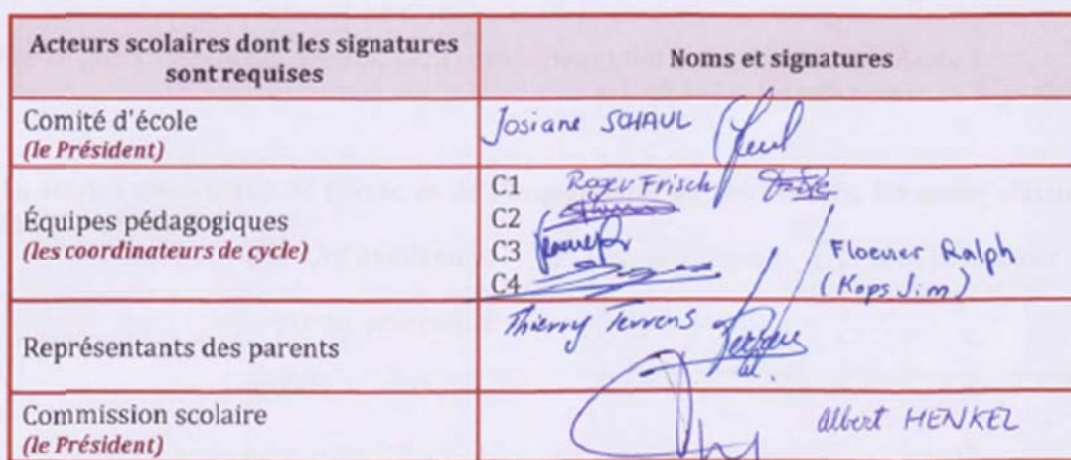 Acteurs scolaires dont les signatures
sont requises
Noms et signatures
Comité d'école
(le Président)
Josiane SCHAUL
Équipes pédagogiques
(les coordinateurs de cycle)
C1 Roger Frisch
C2
C3
C4
Ralph
(Kops Jim)
Représentants des parents
Thierry
Commission scolaire
(le Président)
Albert HENKEL